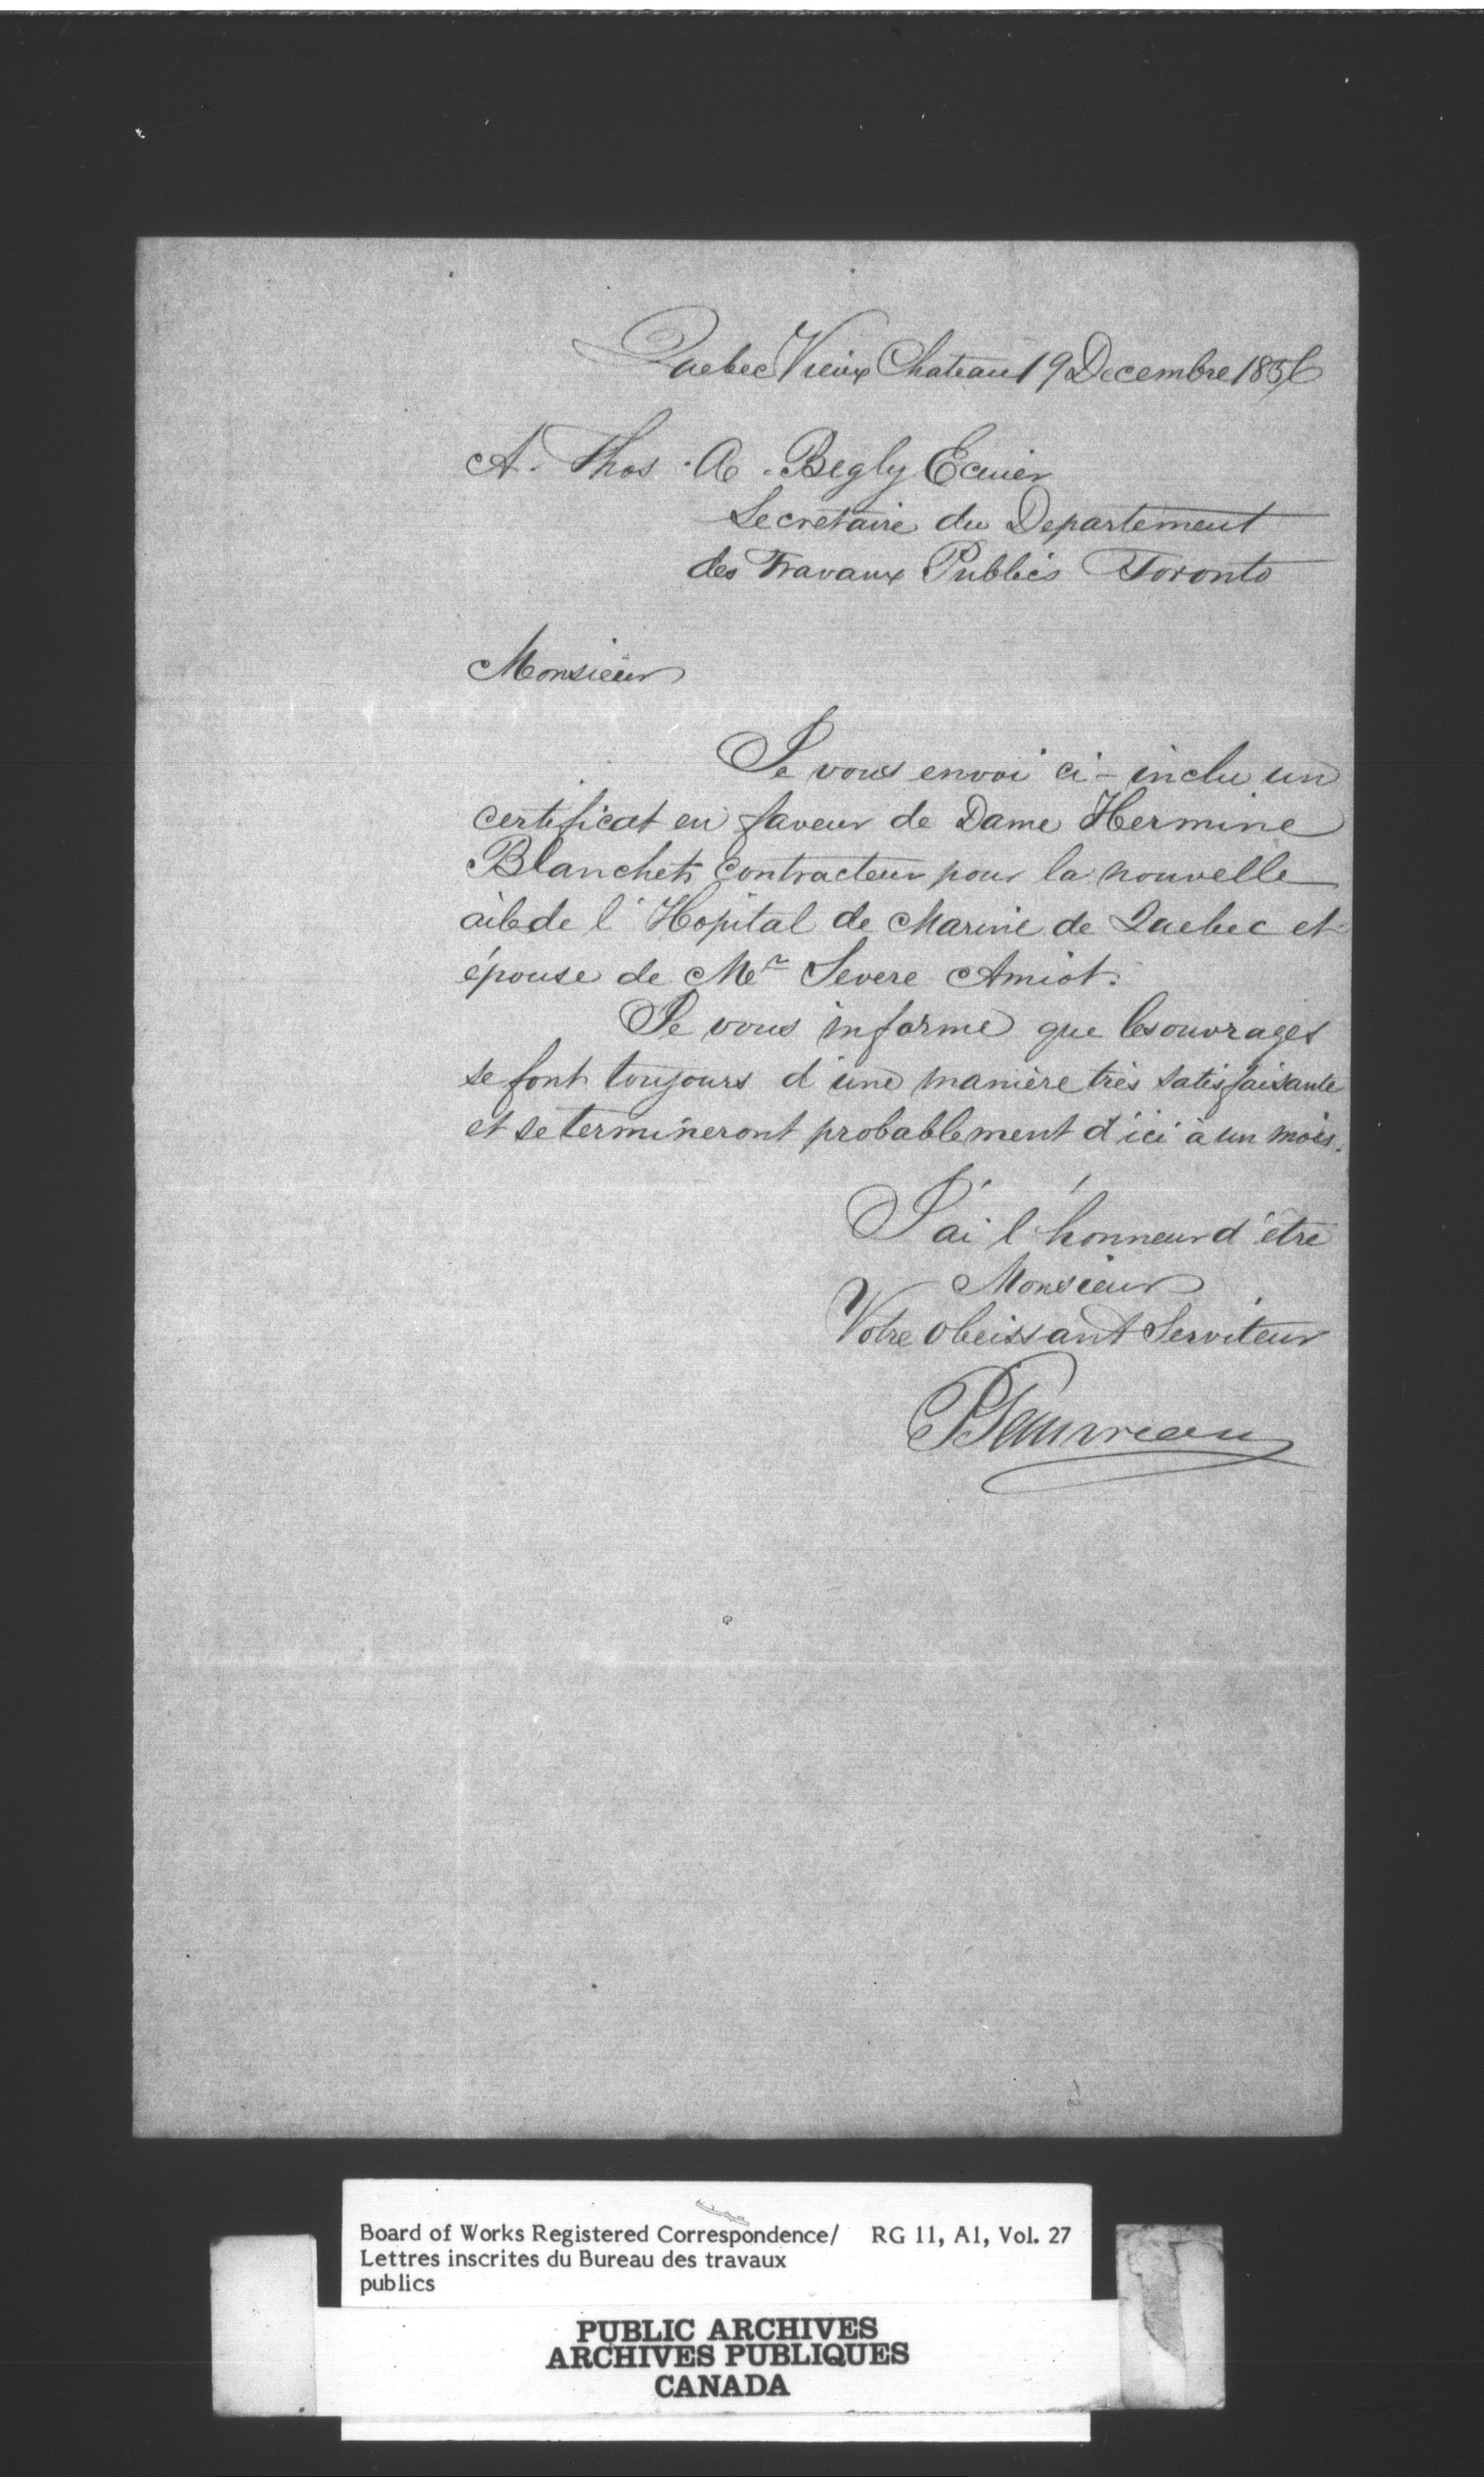 Quebec Vieux Chateau 19 Decembre 1856
A. Thos. A. Begly Ecuier
Secretaire du Departement
des Travaux Publics Toronto
Monsieur
Je vous envoi ci-inclu un
certificat en faveur de Dame Hermine
Blanchet contracteur pour la nouvelle
aile de l'Hopital de Marine de Quebec et
épouse de Mr Severe Amiot.
Je vous informe que les ouvrages
se font toujours d'une manière très satisfaisante
et se termineront probablement d'ici à un mois.
J'ai l'honneur d'etre
Monsieur
Votre obeissant Serviteur
Board of Works Registered Correspondence/ RG 11, A1, Vol. 27
Lettres inscrites du Bureau des travaux
publics
PUBLIC ARCHIVES
ARCHIVES PUBLIQUES
CANADA